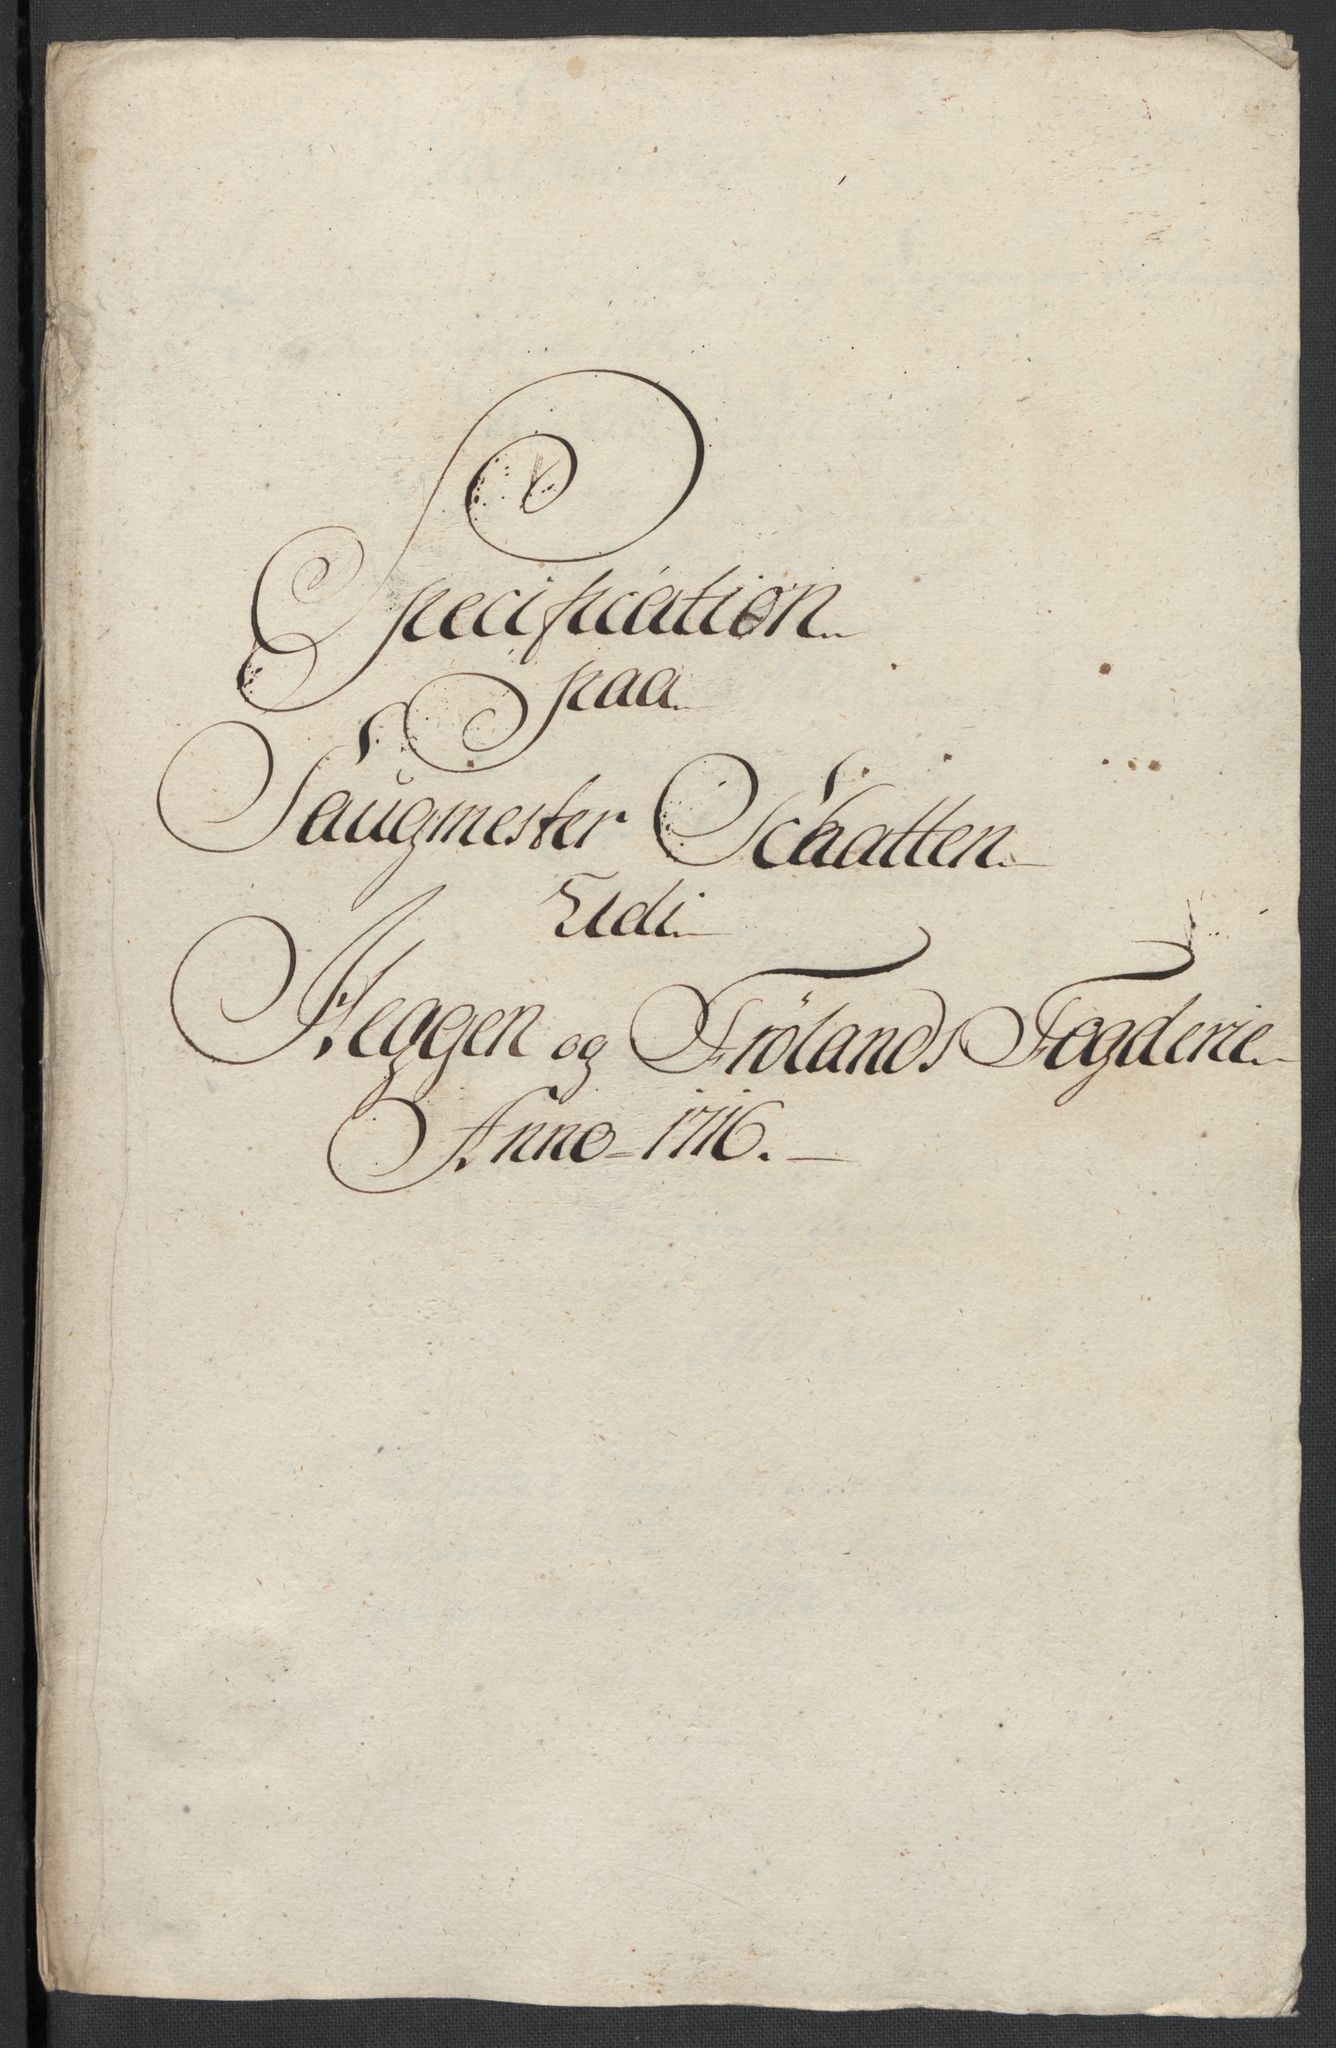 Specification
paa
Saugmester Schatten
Udi
Heggen og Frølands Fogderie
Anno 1716.